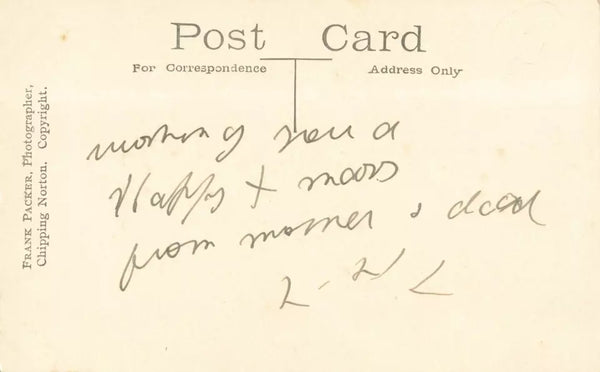 Post Card
For Correspondence
Address Only
FRANK PACKER, Photographer,
Chipping Norton. Copyright.
wishing you a
Happy X mass
from mother & dad